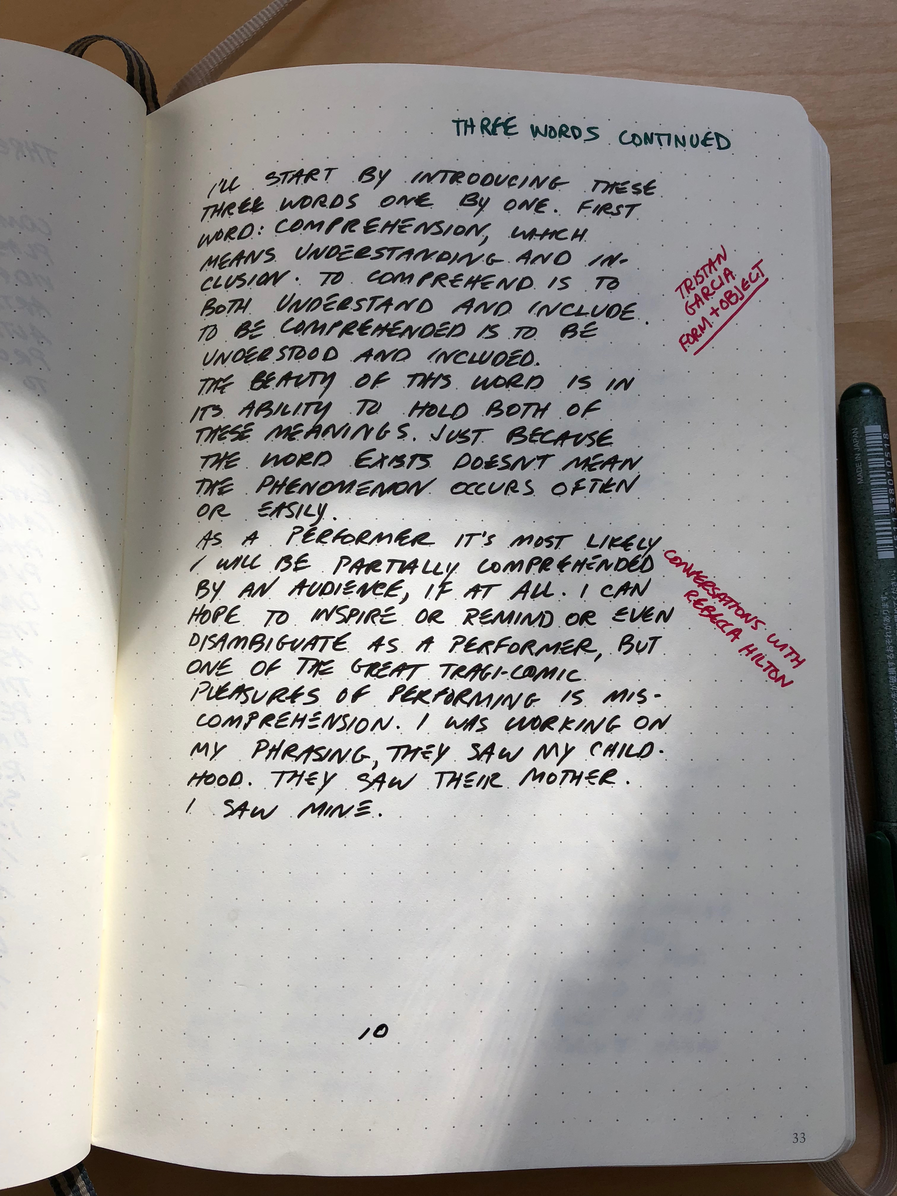 THREE WORDS CONTINUED
I'LL START BY INTRODUCING THESE
THREE WORDS ONE BY ONE. FIRST
WORD: COMPREHENSION, WHICH
MEANS UNDERSTANDING AND IN-
CLUSION. TO COMPREHEND IS TO
BOTH UNDERSTAND AND INCLUDE.
TO BE COMPREHENDED IS TO BE
UNDERSTOOD AND INCLUDED.
THE BEAUTY OF THIS WORD IS IN
ITS ABILITY TO HOLD BOTH OF
THESE MEANINGS. JUST BECAUSE
THE WORD EXISTS DOESN'T MEAN
THE PHENOMENON OCCURS OFTEN
OR EASILY.
AS A PERFORMER IT'S MOST LIKELY
I WILL BE PARTIALLY COMPREHENDED
BY AN AUDIENCE, IF AT ALL. I CAN
HOPE TO INSPIRE OR REMIND OR EVEN
DISAMBIGUATE AS A PERFORMER, BUT
ONE OF THE GREAT TRAGI-COMIC
PLEASURES OF PERFORMING IS MIS-
COMPREHENSION. I WAS WORKING ON
MY PHRASING, THEY SAW MY CHILD-
HOOD. THEY SAW THEIR MOTHER.
I SAW MINE.
TRISTAN
GARCIA
FORM + OBJECT
CONVERSATIONS WITH
REBECCA HILTON
10
33
MADE IN JAPAN